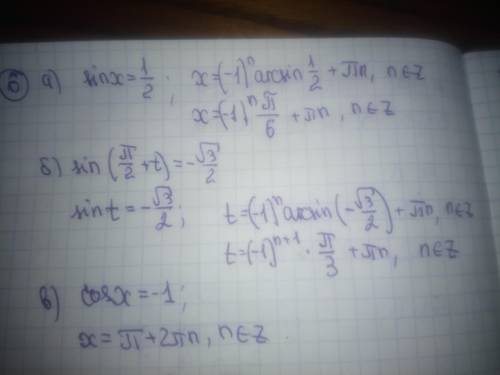 ⑤ а) sinx = 1/2 ; x = (-1)ⁿ arcsin 1/2 + πn, n∈Z
x = (-1)ⁿ π/6 + πn, n∈Z
б) sin(π/2 + t) = -√3/2
sin t = -√3/2 ; t = (-1)ⁿ arcsin(-√3/2) + πn, n∈Z
t = (-1)ⁿ⁺¹ · π/3 + πn, n∈Z
в) cosx = -1 ;
x = π + 2πn, n∈Z